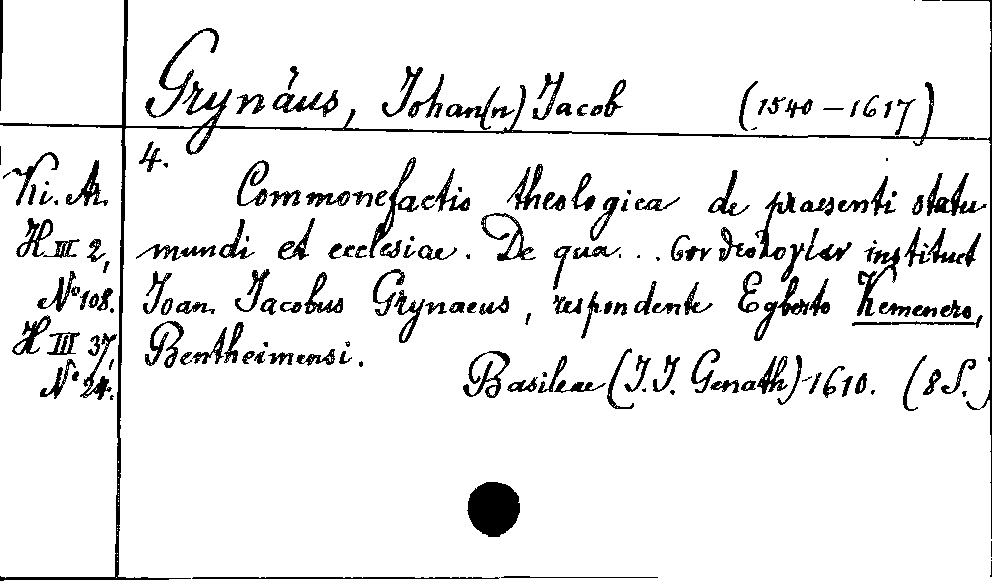 Grynäus, Johan(n) Jacob (1540–1617)
4.
Ki. Ar. Commonefactio theologica de praesenti statu
H III 2, mundi et ecclesiae. De qua... instituet
No 108. Joan. Jacobus Grynaeus, respondente Egberto Kemenero,
H III 37, Bentheimensi.
No 24. Basileae (J. J. Genath) 1610. (8 S.)